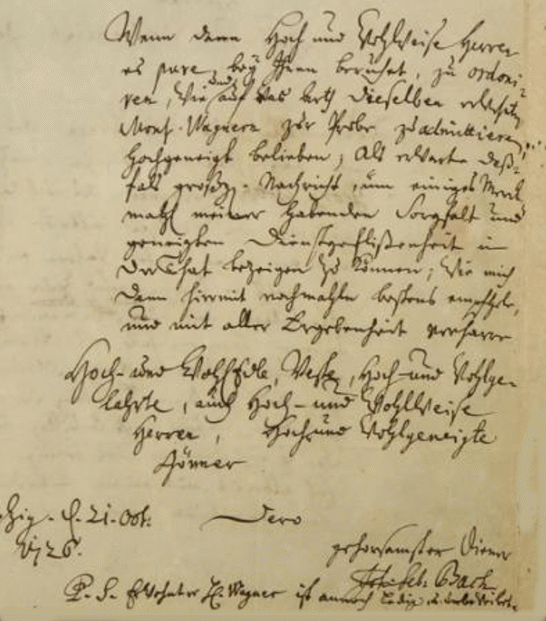 Wenn denn Hoch und Wohlweise Herren
es pure bey Ihnen beruhet, zu ordoni-
ren, wie und auf was arth dieselben
Mons. Wagnern zur Probe zu admittieren
hochgeneigt belieben; Als erwarte deß-
fals großg. Nachricht, um einiges Merck-
mahl meiner habenden Sorgfalt und
geneigten Dienstgeflißenheit in
Der That bezeigen zu können; Wie mich
denn hiermit nochmahln bestens empfehle,
und mit aller Ergebenheit verharre
Hoch- und WohlEdle, Veste, Hoch- und Wohlge-
lahrte, auch Hoch- und Wohlweise
Herren, Hoch und Wohlgeneigte
Gönner
d. 21. Oct. Dero
1726. gehorsamster Diener
Joh. Seb. Bach
P. S. Erwehnter H. Wagner ist annoch ledig